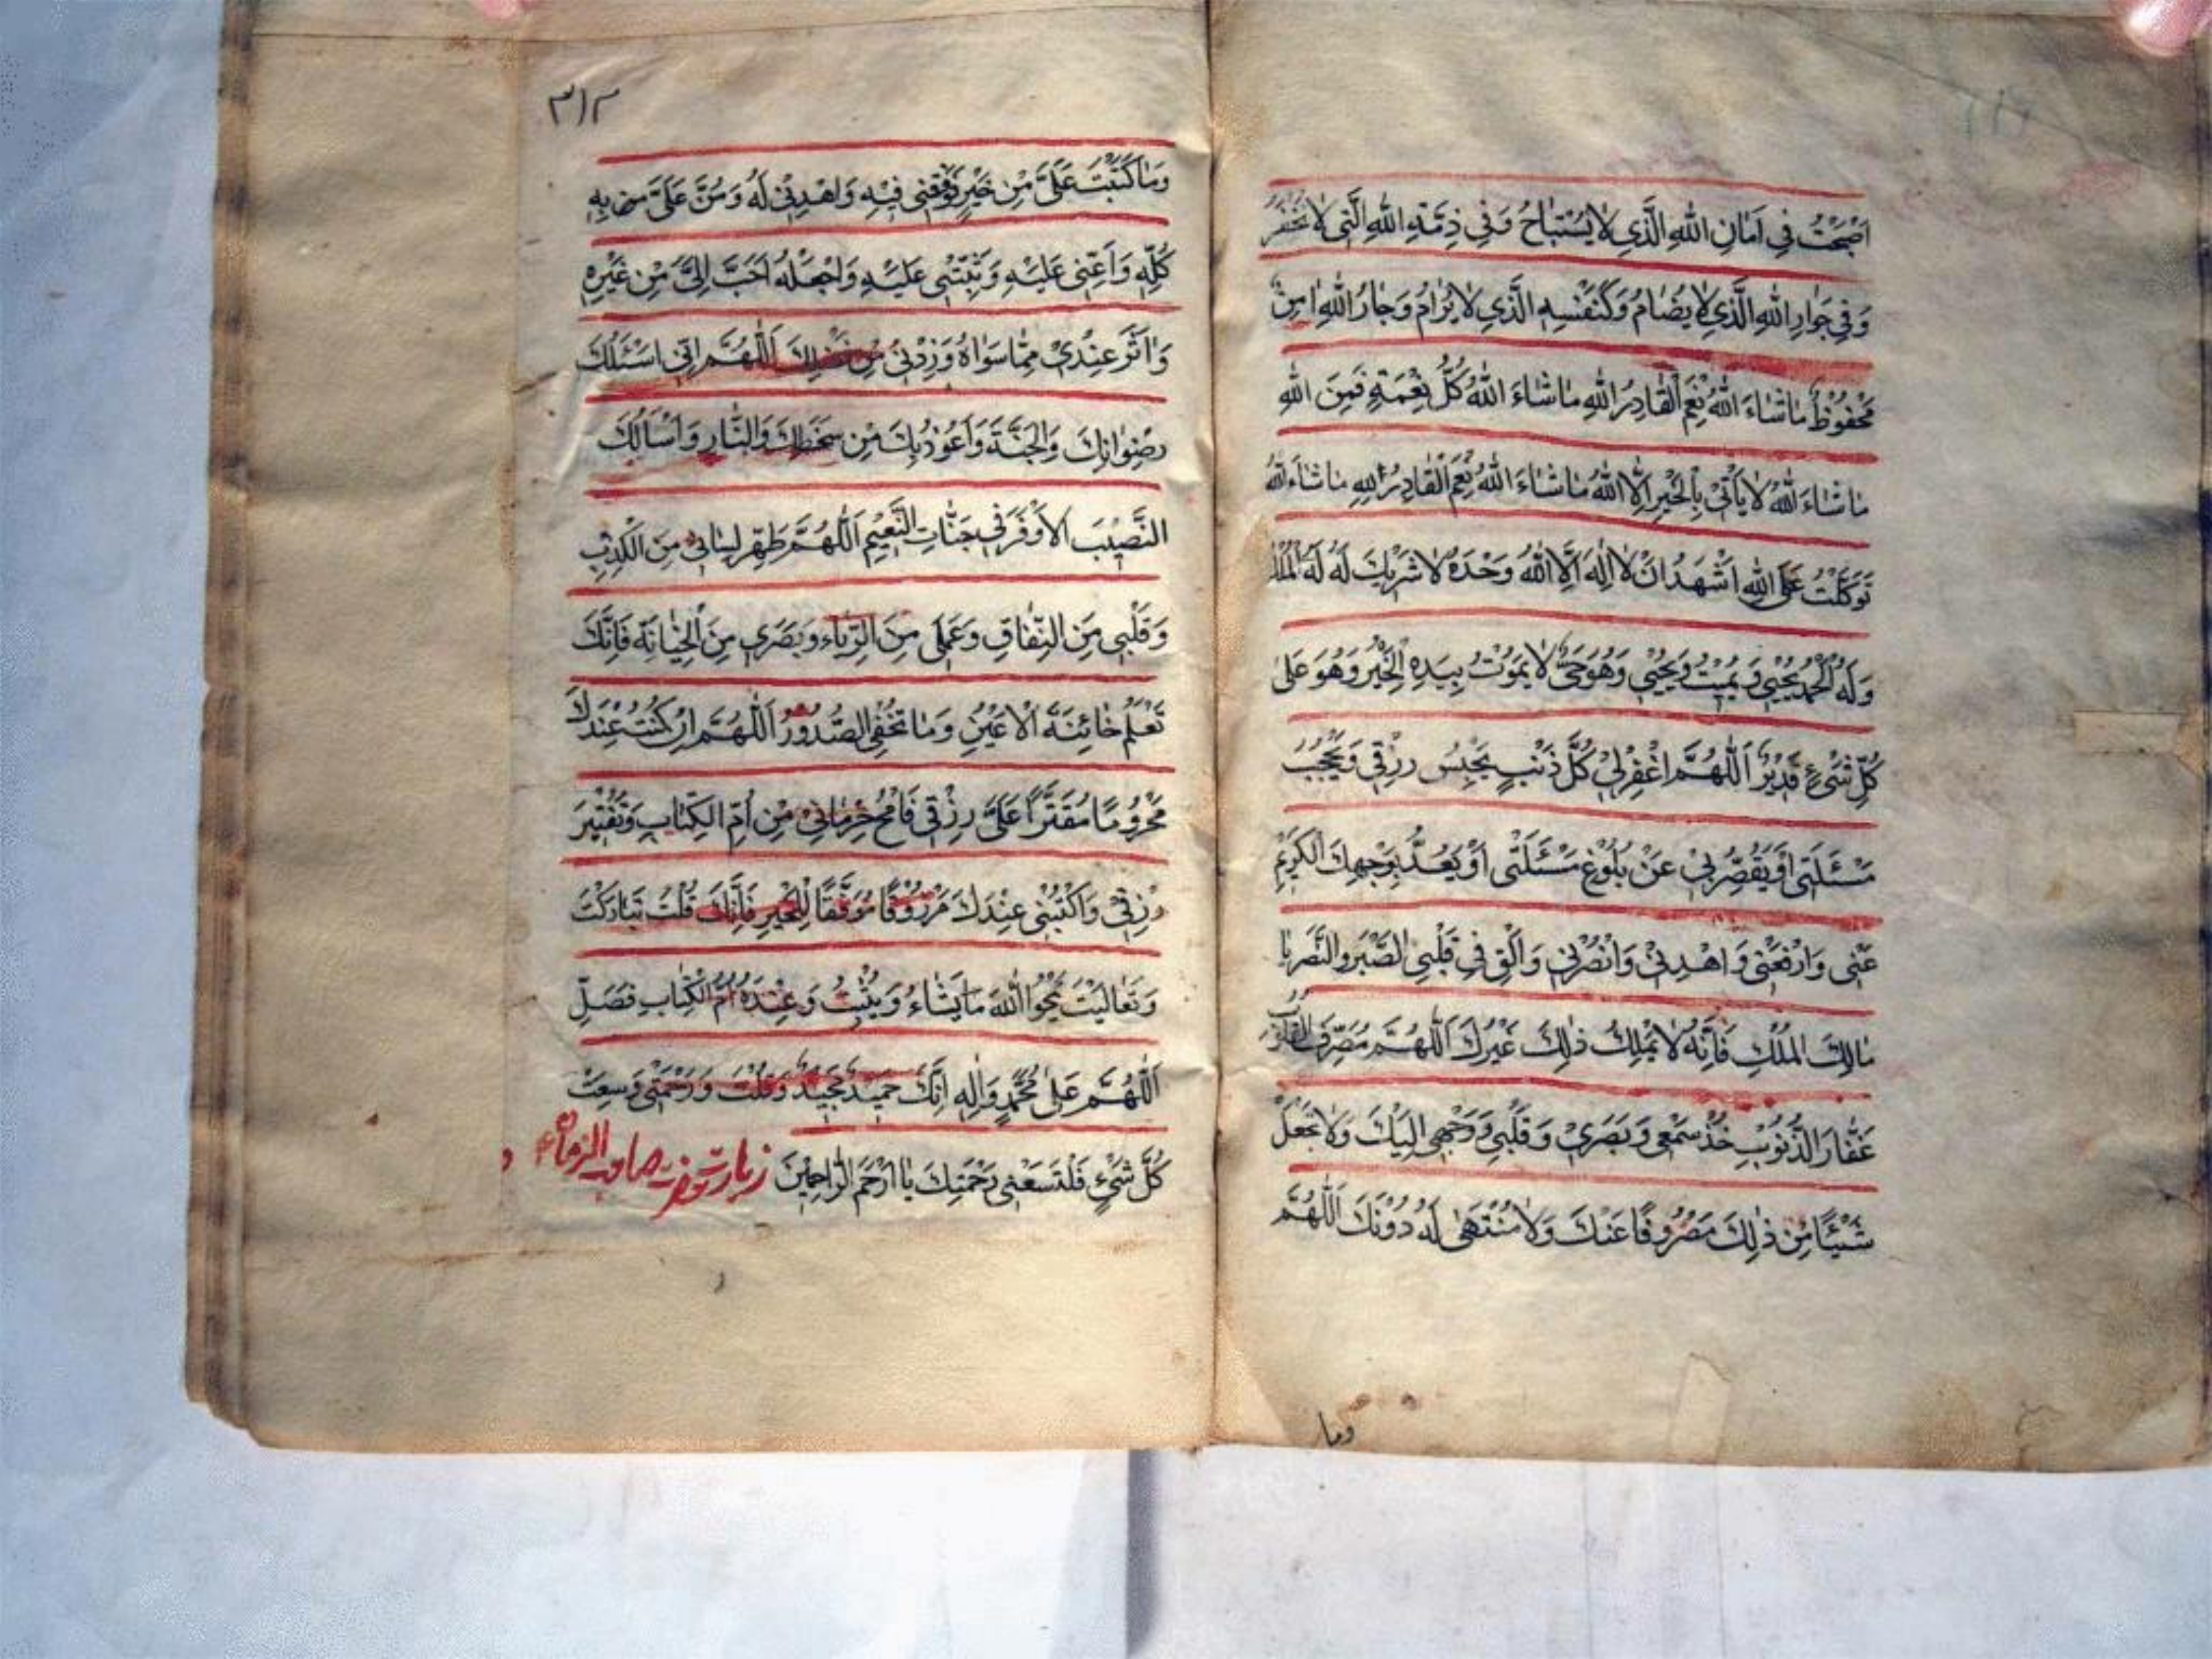 اَصْبَحْتُ فِي اَمَانِ اللهِ الَّذِي لَا يُسْتَبَاحُ وَفِي ذِمَّةِ اللهِ الَّتِي لَا تُخْفَرُ
وَفِي جَوَارِ اللهِ الَّذِي لَا يُضَامُ وَكَنَفْسِهِ الَّذِي لَا يُرَامُ وَجَارُ اللهِ امِنٌ
مَحْفُوظٌ مَا شَاءَ اللهُ نِعْمَ الْقَادِرُ اللهِ مَا شَاءَ اللهُ كُلُّ نِعْمَةٍ فَمِنَ اللهِ
مَا شَاءَ اللهُ لَا يَأْتِي بِالْخَيْرِ اِلَّا اللهُ مَا شَاءَ اللهُ نِعْمَ الْقَادِرُ اللهِ مَا شَاءَ اللهُ
تَوَكَّلْتُ عَلَى اللهِ اَشْهَدُ اَنْ لَا اِلٰهَ اِلَّا اللهُ وَحْدَهُ لَا شَرِيْكَ لَهُ لَهُ الْمُلْكُ
وَلَهُ الْحَمْدُ يُحْيِي وَيُمِيْتُ وَيُحْيِي وَهُوَ حَيٌّ لَا يَمُوْتُ بِيَدِهِ الْخَيْرُ وَهُوَ عَلَى
كُلِّ شَيْءٍ قَدِيْرٌ اَللّٰهُمَّ اغْفِرْلِيْ كُلَّ ذَنْبٍ يَحْبِسُ رِزْقِي وَيَحْجُبُ
مَسْئَلَتِي اَوْ يُقَصِّرُ بِيْ عَنْ بُلُوْغِ مَسْئَلَتِي اَوْ يَصُدُّ بِوَجْهِكَ الْكَرِيْمِ
عَنِّي وَارْفَعْنِي وَاهْدِنِيْ وَانْصُرْنِي وَاَلْقِ فِي قَلْبِي الصَّبْرَ وَالنَّصْرَ يَا
مَالِكَ الْمُلْكِ فَاِنَّهُ لَا يَمْلِكُ ذٰلِكَ غَيْرُكَ اَللّٰهُمَّ مُصَرِّفَ الْقُلُوْبِ
غَفَّارَ الذُّنُوْبِ خُذْ سَمْعِي وَبَصَرِيْ وَقَلْبِي وَوَجْهِي اِلَيْكَ وَلَا تَجْعَلْ
شَيْئًا مِنْ ذٰلِكَ مَصْرُوفًا عَنْكَ وَلَا مُنْتَهَى لَهُ دُوْنَكَ اَللّٰهُمَّ
وما
٣١٢
وَمَا كَتَبْتَ عَلَيَّ مِنْ خَيْرٍ فَوَفِّقْنِي فِيْهِ وَاهْدِنِيْ لَهُ وَمُنَّ عَلَيَّ بِهِ
كُلِّهِ وَاَعِنِّي عَلَيْهِ وَثَبِّتْنِي عَلَيْهِ وَاجْعَلْهُ اَحَبَّ اِلَيَّ مِنْ غَيْرِهِ
وَاٰثَرَ عِنْدِيْ مِمَّا سِوَاهُ وَزِدْنِيْ مِنْ فَضْلِكَ اَللّٰهُمَّ اِنِّي اَسْئَلُكَ
رِضْوَانَكَ وَالْجَنَّةَ وَاَعُوْذُ بِكَ مِنْ سَخَطِكَ وَالنَّارِ وَاَسْأَلُكَ
النَّصِيْبَ الْاَوْفَرَ فِي جَنَّاتِ النَّعِيْمِ اَللّٰهُمَّ طَهِّرْ لِسَانِي مِنَ الْكَذِبِ
وَقَلْبِي مِنَ النِّفَاقِ وَعَمَلِي مِنَ الرِّيَاءِ وَبَصَرِي مِنَ الْخِيَانَةِ فَاِنَّكَ
تَعْلَمُ خَائِنَةَ الْاَعْيُنِ وَمَا تُخْفِي الصُّدُوْرُ اَللّٰهُمَّ اِنْ كُنْتُ عِنْدَكَ
مَحْرُوْمًا مُقَتَّرًا عَلَيَّ رِزْقِي فَامْحُ حِرْمَانِيْ مِنْ اُمِّ الْكِتَابِ وَتَقْتِيْرَ
رِزْقِي وَاكْتُبْنِي عِنْدَكَ مَرْزُوْقًا مُوَفَّقًا لِلْخَيْرِ فَاِنَّكَ قُلْتَ تَبَارَكْتَ
وَتَعَالَيْتَ يَمْحُوا اللهَ مَا يَشَاءُ وَيُثْبِتُ وَعِنْدَهُ اُمُّ الْكِتَابِ فَصَلِّ
اَللّٰهُمَّ عَلَى مُحَمَّدٍ وَاٰلِهِ اِنَّكَ حَمِيْدٌ مَجِيْدٌ وَقُلْتَ وَرَحْمَتِي وَسِعَتْ
كُلَّ شَيْءٍ فَلْتَسَعْنِي رَحْمَتُكَ يَا اَرْحَمَ الرَّاحِمِيْنَ زيارت حضرت صاحب الزمان ع